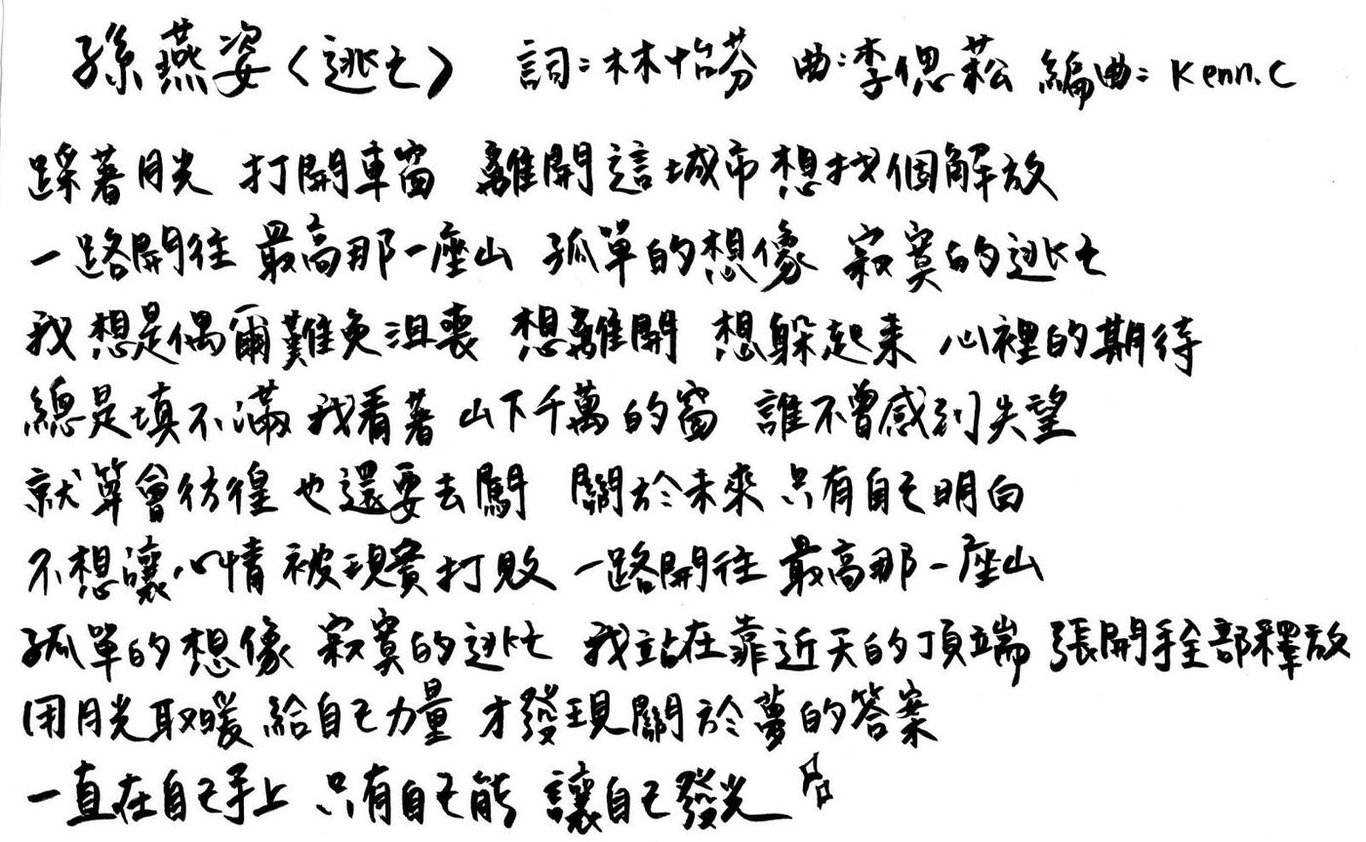 孫燕姿〈逃亡〉 詞:林怡芬 曲:李偲菘 編曲:Kenn.C
踩著月光 打開車窗 離開這城市想找個解放
一路開往 最高那一座山 孤單的想像 寂寞的逃亡
我想是偶爾難免沮喪 想離開 想躲起来 心裡的期待
總是填不滿 我看著 山下千萬的窗 誰不曾感到失望
就算會彷徨 也還要去闖 關於未來 只有自己明白
不想讓心情 被現實打敗 一路開往 最高那一座山
孤單的想像 寂寞的逃亡 我站在靠近天的頂端 張開手全部釋放
用月光取暖 給自己力量 才發現關於夢的答案
一直在自己手上 只有自己能 讓自己發光